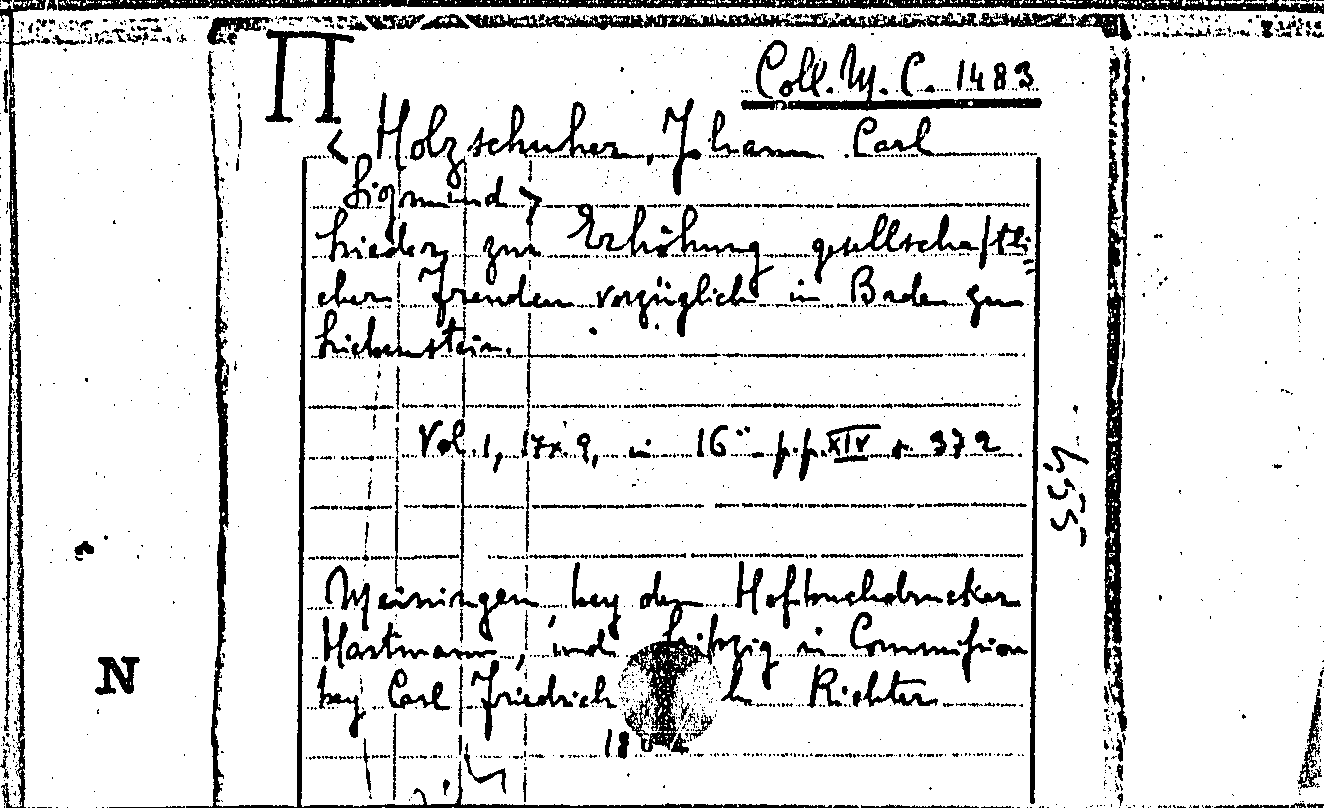 Π
Coll. M. C. 1483
< Holzschuher, Johann Carl
Sigmund >
Lieder zur Erhöhung gesellschaftli=
cher Freuden vorzüglich im Baden zum
Liebenstein.
Vol. 1, 17x 9, in 16° p.p. XIV + 372
Meiningen, bey dem Hofbuchdrucker
Hartmann, und Leipzig in Commiſsion
bey Carl Friedrich Richter
1804
N